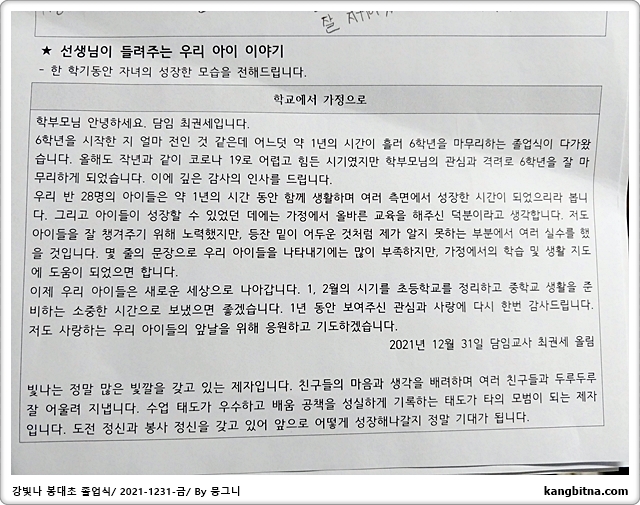 ★ 선생님이 들려주는 우리 아이 이야기
- 한 학기동안 자녀의 성장한 모습을 전해드립니다.
학교에서 가정으로
학부모님 안녕하세요. 담임 최권세입니다.
6학년을 시작한 지 얼마 전인 것 같은데 어느덧 약 1년의 시간이 흘러 6학년을 마무리하는 졸업식이 다가왔
습니다. 올해도 작년과 같이 코로나 19로 어렵고 힘든 시기였지만 학부모님의 관심과 격려로 6학년을 잘 마
무리하게 되었습니다. 이에 깊은 감사의 인사를 드립니다.
우리 반 28명의 아이들은 약 1년의 시간 동안 함께 생활하며 여러 측면에서 성장한 시간이 되었으리라 봅니
다. 그리고 아이들이 성장할 수 있었던 데에는 가정에서 올바른 교육을 해주신 덕분이라고 생각합니다. 저도
아이들을 잘 챙겨주기 위해 노력했지만, 등잔 밑이 어두운 것처럼 제가 알지 못하는 부분에서 여러 실수를 했
을 것입니다. 몇 줄의 문장으로 우리 아이들을 나타내기에는 많이 부족하지만, 가정에서의 학습 및 생활 지도
에 도움이 되었으면 합니다.
이제 우리 아이들은 새로운 세상으로 나아갑니다. 1, 2월의 시기를 초등학교를 정리하고 중학교 생활을 준
비하는 소중한 시간으로 보냈으면 좋겠습니다. 1년 동안 보여주신 관심과 사랑에 다시 한번 감사드립니다.
저도 사랑하는 우리 아이들의 앞날을 위해 응원하고 기도하겠습니다.
2021년 12월 31일 담임교사 최권세 올림
빛나는 정말 많은 빛깔을 갖고 있는 제자입니다. 친구들의 마음과 생각을 배려하며 여러 친구들과 두루두루
잘 어울려 지냅니다. 수업 태도가 우수하고 배움 공책을 성실하게 기록하는 태도가 타의 모범이 되는 제자
입니다. 도전 정신과 봉사 정신을 갖고 있어 앞으로 어떻게 성장해나갈지 정말 기대가 됩니다.
강빛나 봉대초 졸업식/ 2021-1231-금/ By 뭉그니
kangbitna.com